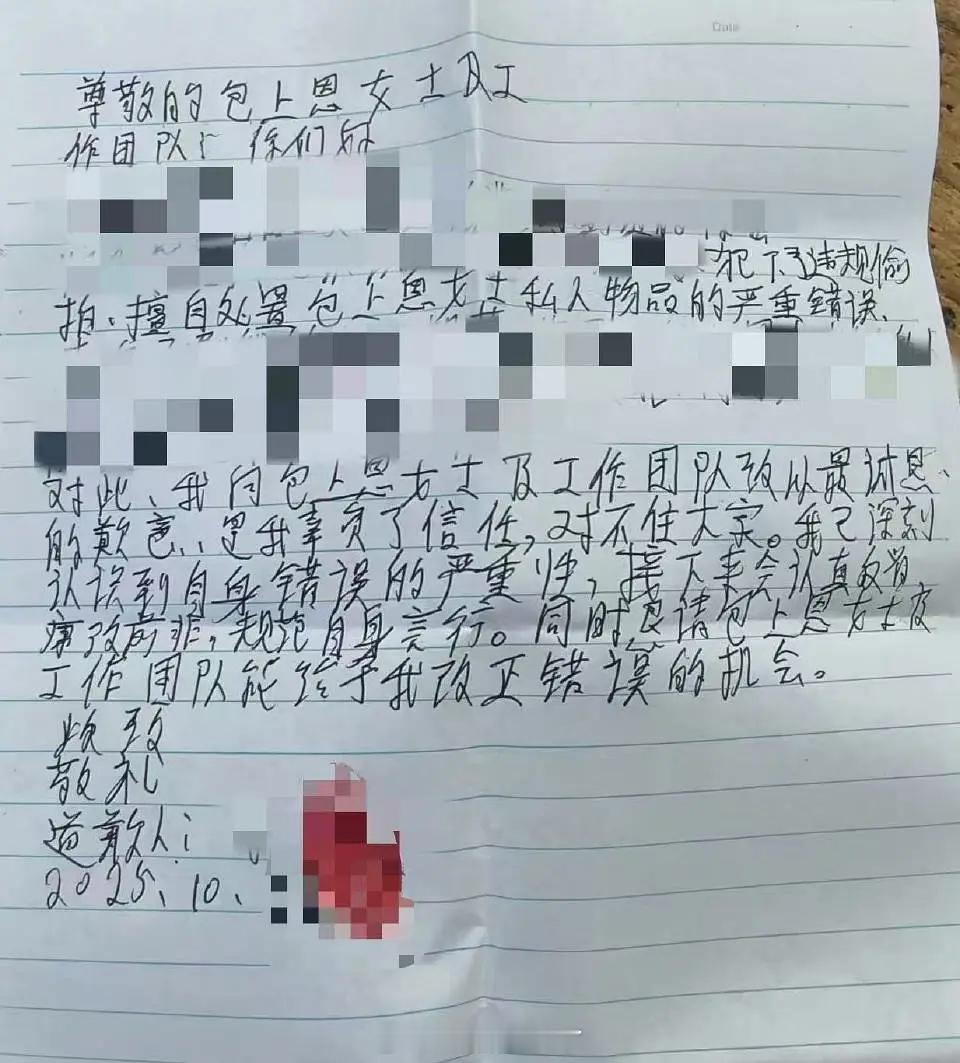 Date
尊敬的包上恩女士及工
作团队：你们好
犯下了违规偷
拍、擅自处置包上恩女士私人物品的严重错误、
对此、我向包上恩女士及工作团队致以最诚恳、
的歉意、是我辜负了信任，对不住大家。我已深刻
认误到自身错误的严重性，接下来会认真敀省
痛改前非，规范自身言行。同时恳请包上恩女士及
工作团队能给予我改正错误的机会。
此致
敬礼
道歉人：
2025、10、